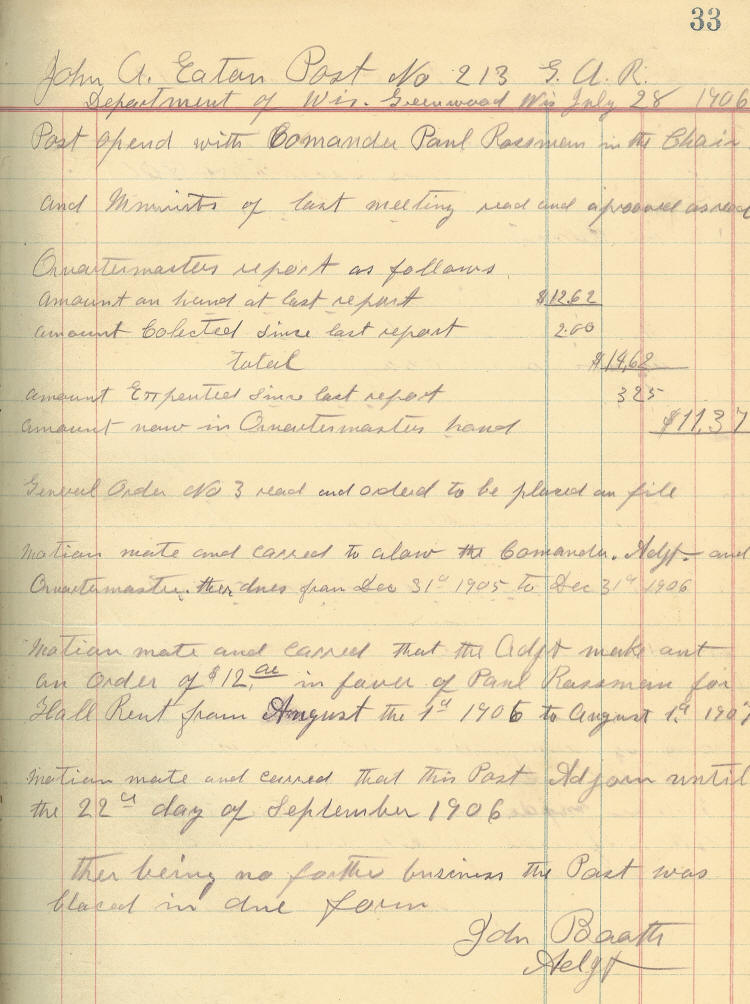 33
John A. Eaton Post No 213 G. A. R.
Department of Wis. Greenwood Wis July 28 1906
Post opend with Comander Paul Rossman in the Chair
and Minnirts of last meeting read and aproved as read
Quartermasters report as follows
amount on hand at last report $12.62
amount Colected since last report 2.00
Total $14,62
amount Expented since last report 325
amount now in Quartermasters hand $11.37
General Order No 3 read and orderd to be placed on file
Motion mate and carred to alow the Comander. Adjt. and
Quartermaster. ther dues from Dec 31st 1905 to Dec 31st 1906
Motion mate and carred that the Adjt make out
an Order of $12, in faver of Paul Rossman for
Hall Rent from August the 1st 1906 to August 1st 1907
Motion mate and carred that this Post Adjorn until
the 22d day of September 1906
ther being no forther business the Post was
Closed in due form
John Baath
Adjt